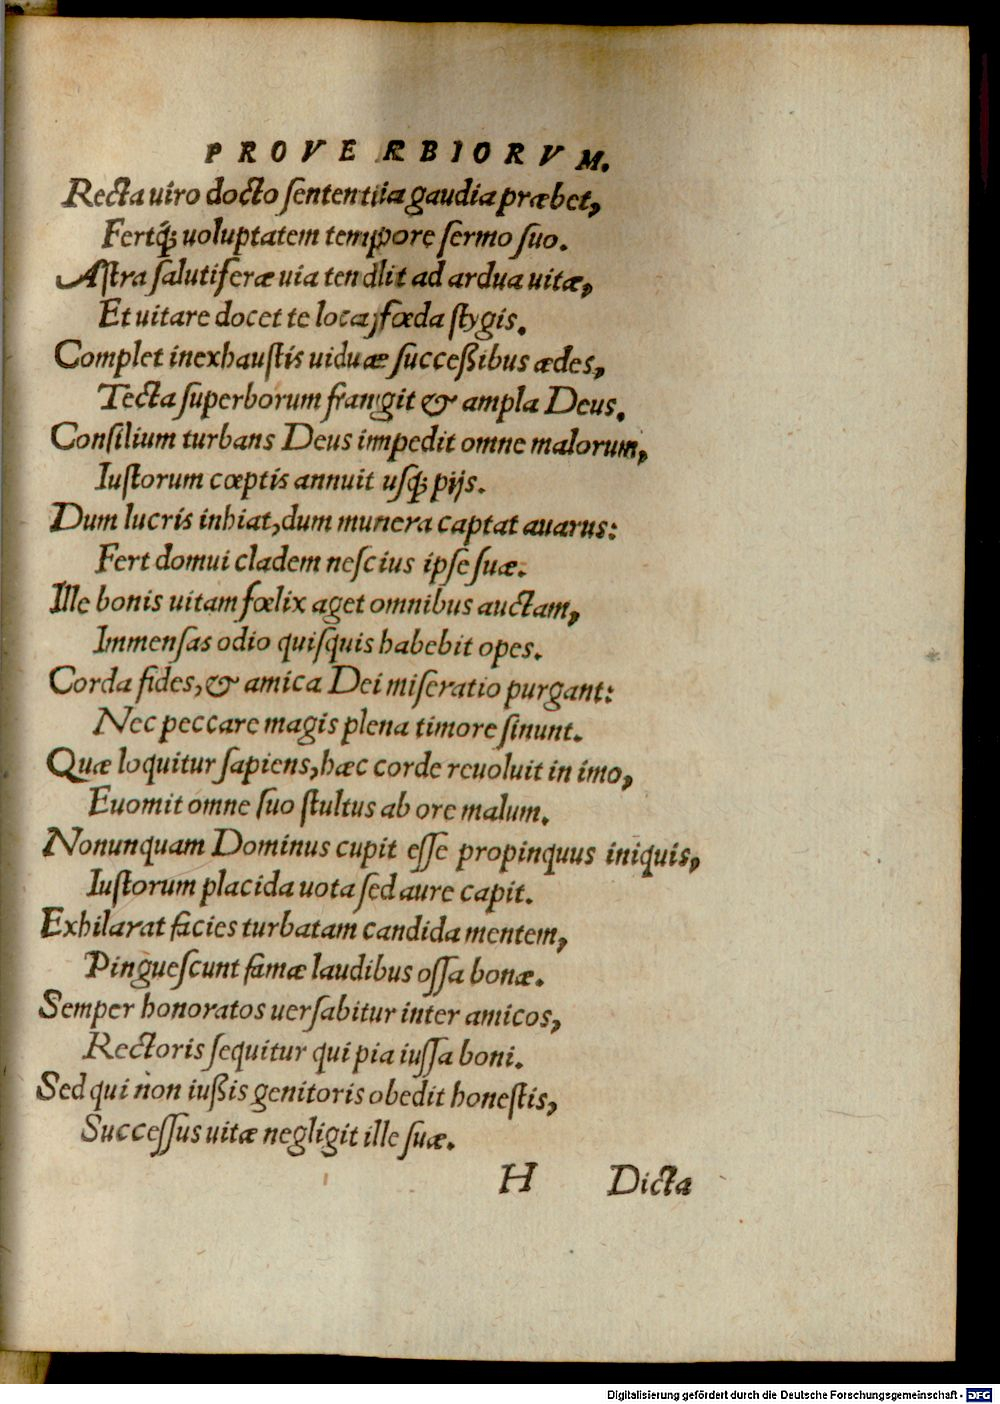 PROVERBIORVM.
Recta uiro docto sententiia gaudia præbet,
Fertq́; uoluptatem temppore sermo suo.
Astra salutiferæ uia tendlit ad ardua uitæ,
Et uitare docet te loca, fœda stygis.
Complet inexhaustis uiduæ successibus ædes,
Tecta superborum frangit & ampla Deus.
Consilium turbans Deus impedit omne malorum,
Iustorum cœptis annuit usq́; pijs.
Dum lucris inhiat, dum munera captat auarus:
Fert domui cladem nescius ipse suæ.
Ille bonis uitam fœlix aget omnibus auctam,
Immensas odio quisquis habebit opes.
Corda fides, & amica Dei miseratio purgant:
Nec peccare magis plena timore sinunt.
Quæ loquitur sapiens, hæc corde reuoluit in imo,
Euomit omne suo stultus ab ore malum.
Nonunquam Dominus cupit esse propinquus iniquis,
Iustorum placida uota sed aure capit.
Exhilarat facies turbatam candida mentem,
Pinguescunt famæ laudibus ossa bonæ.
Semper honoratos uersabitur inter amicos,
Rectoris sequitur qui pia iussa boni.
Sed qui non iussis genitoris obedit honestis,
Successus uitæ negligit ille suæ.
H Dicta
Digitalisierung gefördert durch die Deutsche Forschungsgemeinschaft - DFG